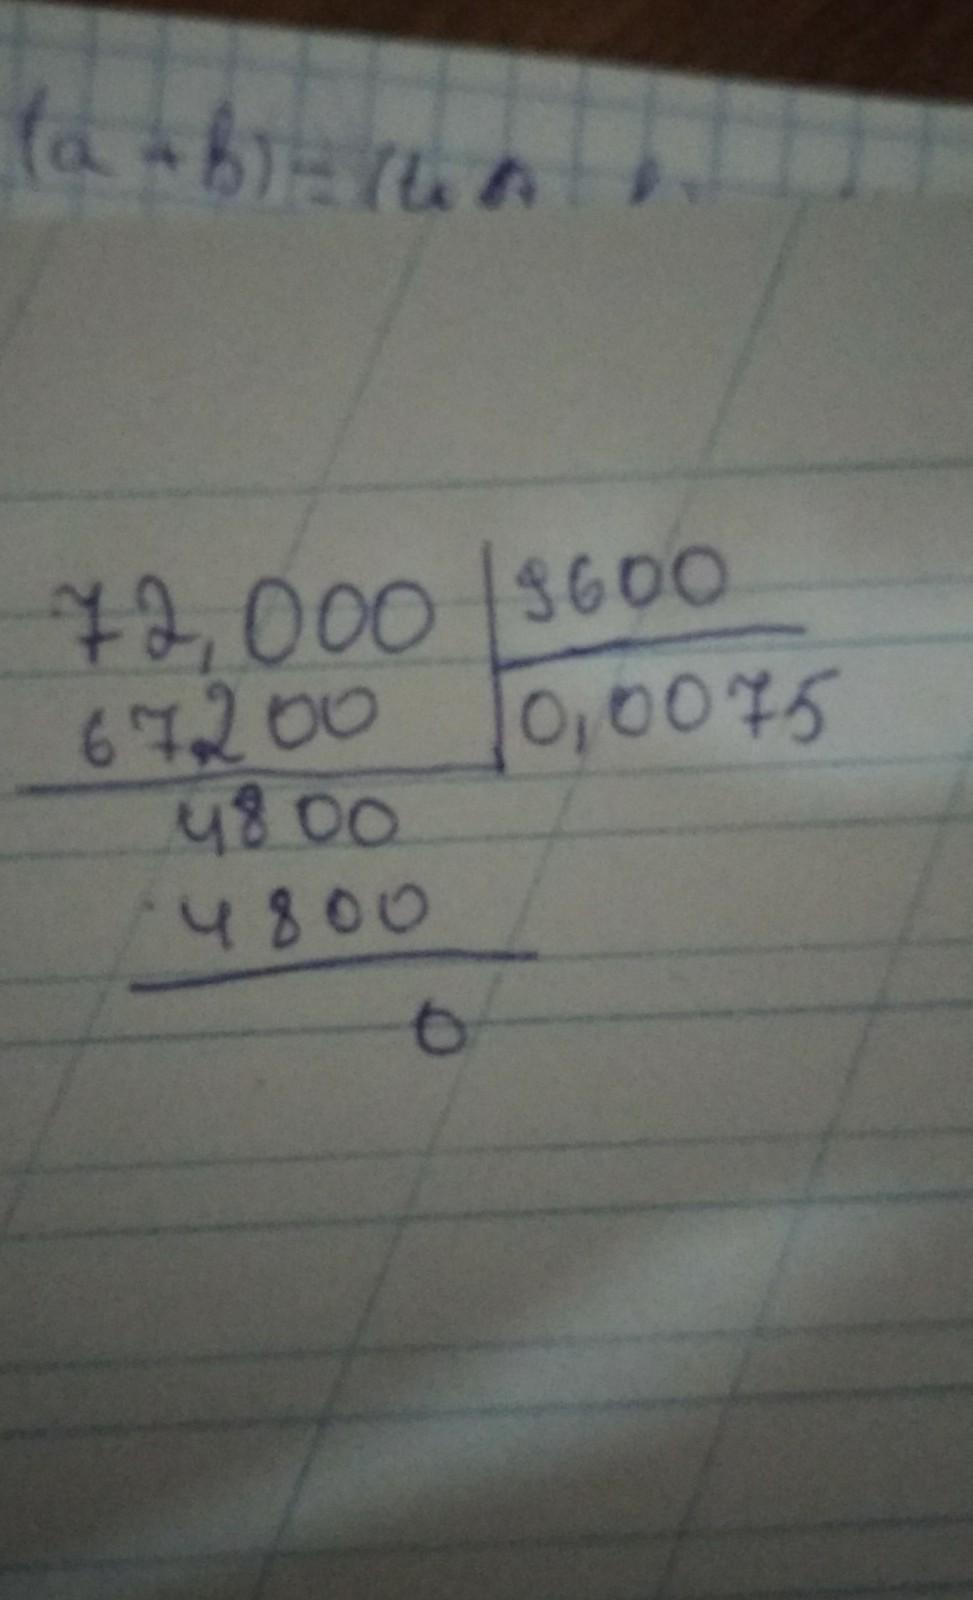 (a + b) =
72,000 | 9600
67200 | 0,0075
4800
4800
0